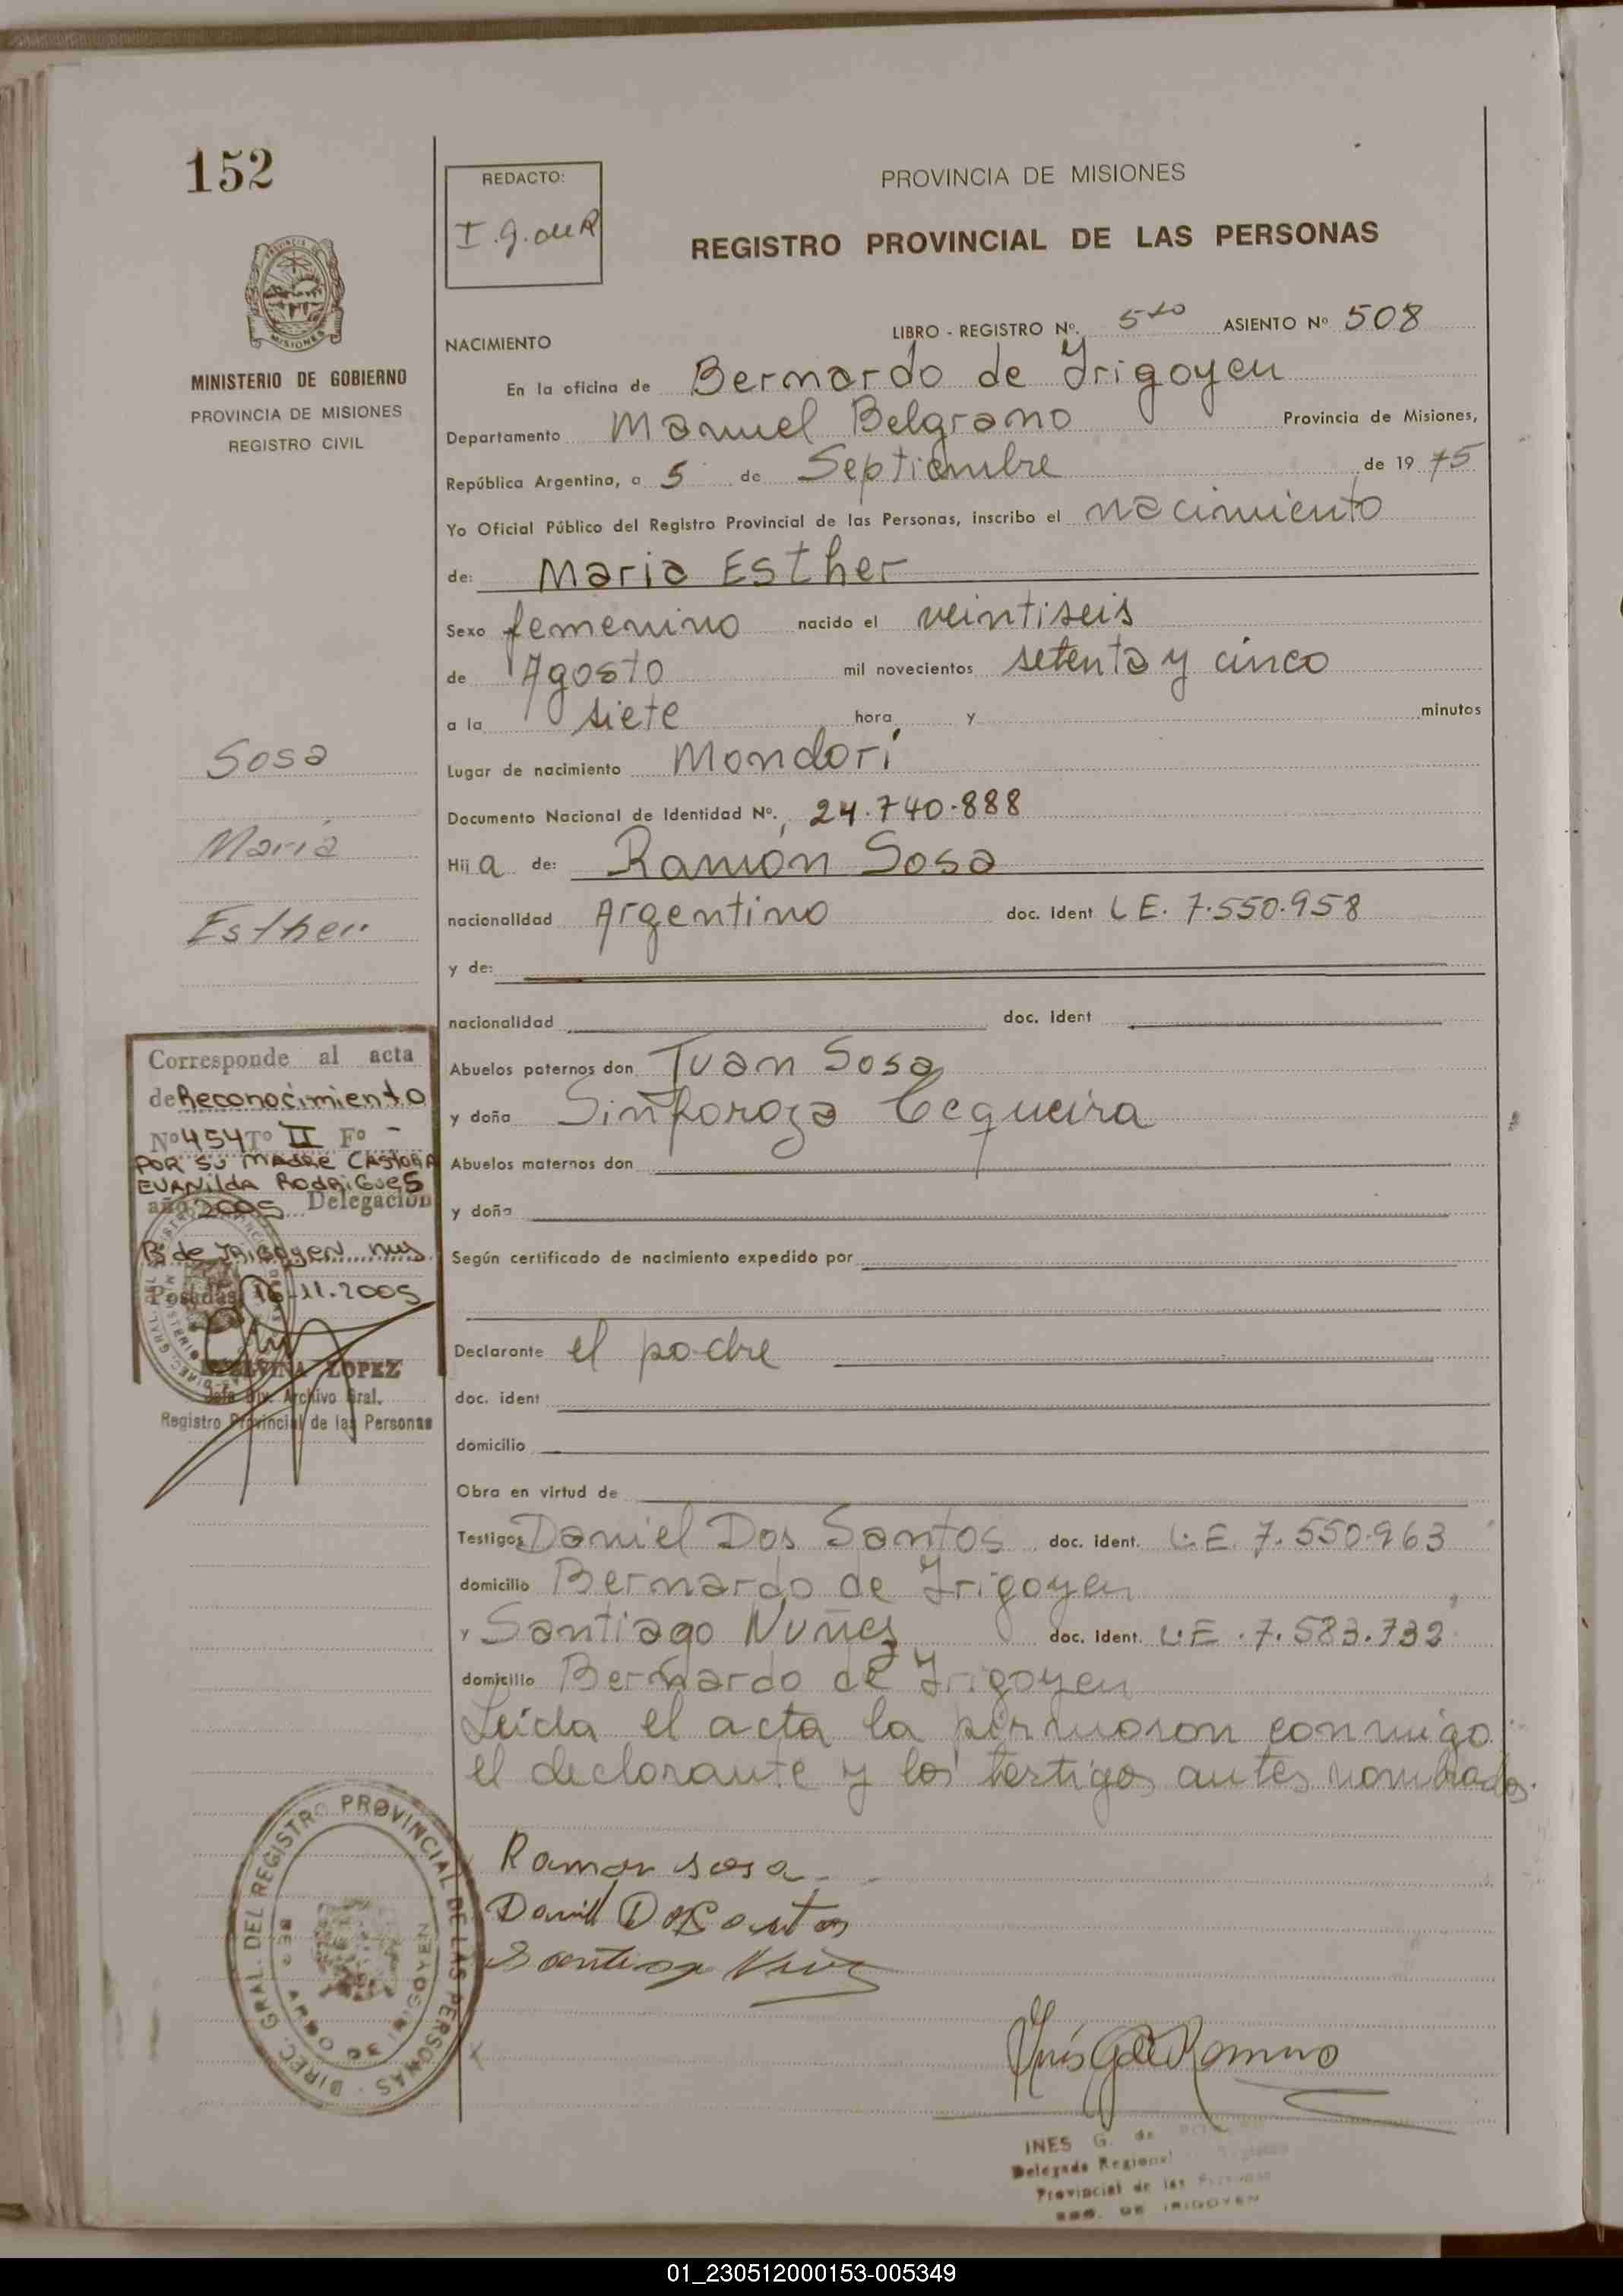 152
REDACTO:
I.G. de R
PROVINCIA DE MISIONES
REGISTRO PROVINCIAL DE LAS PERSONAS
MISIONES
MINISTERIO DE GOBIERNO
PROVINCIA DE MISIONES
REGISTRO CIVIL
LIBRO - REGISTRO Nº. 5to ASIENTO Nº 508
NACIMIENTO
En la oficina de Bernardo de Irigoyen
Departamento Manuel Belgrano Provincia de Misiones,
República Argentina, a 5 de Septiembre de 1975
Yo Oficial Público del Registro Provincial de las Personas, inscribo el nacimiento
de: Maria Esther
Sexo femenino nacido el veintiseis
de Agosto mil novecientos setenta y cinco
a la siete hora y minutos
Lugar de nacimiento Mondori
Documento Nacional de Identidad Nº. 24.740.888
Hija de: Ramón Sosa
nacionalidad Argentino doc. Ident L E. 7.550.958
y de:
nacionalidad doc. Ident
Abuelos paternos don Juan Sosa
y doña Sinforoza Cequeira
Abuelos maternos don
y doña
Según certificado de nacimiento expedido por
Declarante el padre
doc. ident
domicilio
Obra en virtud de
Testigos Daniel Dos Santos doc. ident. L.E. 7.550.963
domicilio Bernardo de Irigoyen
y Santiago Nuñez doc. ident. L.E. 7.583.732
domicilio Bernardo de Irigoyen
Leida el acta la firmaron conmigo
el declarante y los testigos antes nombrados.
Sosa
Maria
Esther
Corresponde al acta
de Reconocimiento
Nº 454 Tº II Fº -
POR SU MADRE CASTORA
EVANILDA RODRIGUES
año 2005 Delegación
Bº de IRIGOYEN mns
Posadas 16-11-2005
LOPEZ
Jefa Div. Archivo Gral.
Registro Provincial de las Personas
DIREC. GRAL. DEL REGISTRO PROVINCIAL DE LAS PERSONAS
BERNARDO DE IRIGOYEN
Ramon sosa
Daniel Dos Santos
Santiago Nuñez
Inés G de Romero
INES G. de
Delegada Regional
Provincial de las Personas
BDO. DE IRIGOYEN
01_230512000153-005349